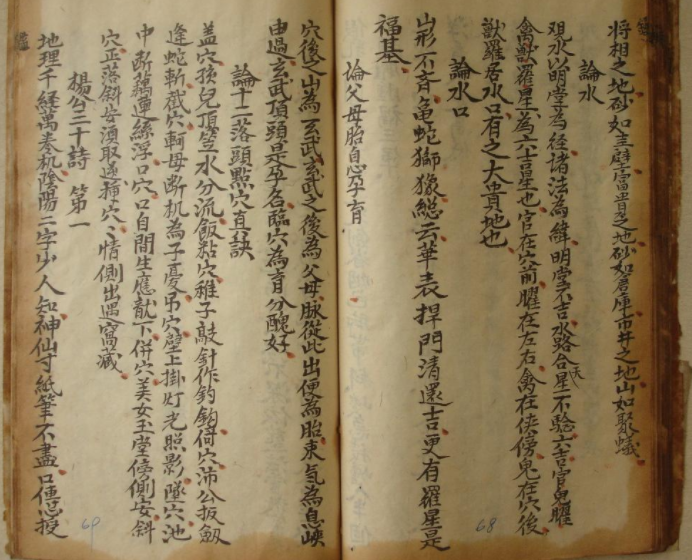 将相之地砂如圭壁富貴之地砂如倉庫市井之地山如聚蟻
論水
覌水以明堂為徑諸法為緯明堂不吉水路合天星不騐六吉官鬼曜
禽獸羅星為六吉星也官在穴前曜在左右禽在侠傍鬼在穴後
獸羅居水口有之大貴地也
論水口
山形不吝亀蛇獅猴緫云華表捍門清還吉更有羅星是
福基
論父母胎息孕育
穴後入山為玄武玄武之後為父母脉從此出便為胎束气為息峽
由過玄武頂頭是孕名臨穴為育分醜好
論十二落頭點穴真訣
盖穴孩兒頂笠水分流飯黏穴稚子敲針作釣鈎倚穴沛公扳劔
逢蛇斬截穴軻母断机為子憂吊穴壁上掛灯光照影墜穴池
中断藕連絲浮口穴口自間生應龍下併穴美女玉堂傍側安斜
穴正落斜安湧取遠種穴、情側出遇窩藏
楊公三十詩 第一
地理千經萬卷机陰陽二字少人知神仙寸紙筆不盡口傳心授
68
69